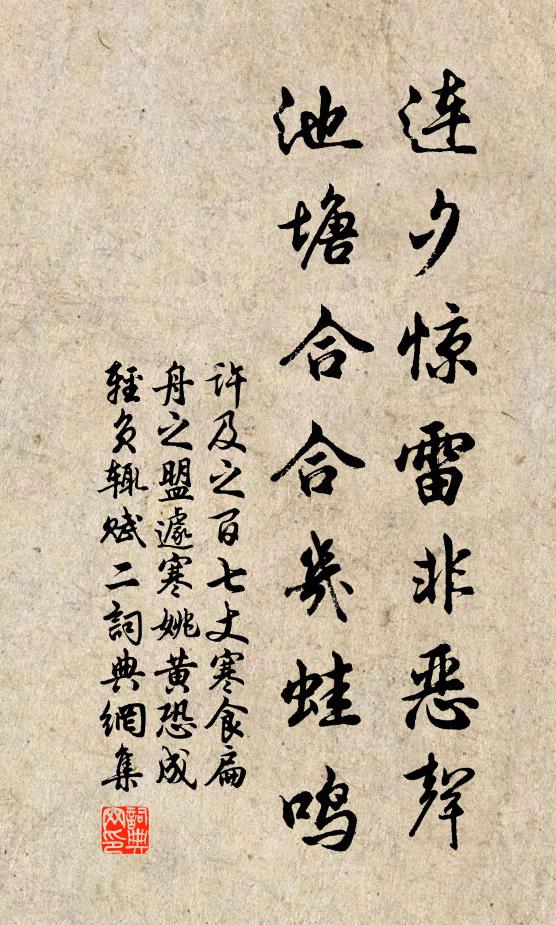 连夕惊雷非恶聲
池塘合合幾蛙鸣
许及之百七丈寒食扁
舟之盟遽寒姚黄恐成
轻负辄赋二詞典網集
詞典
网印